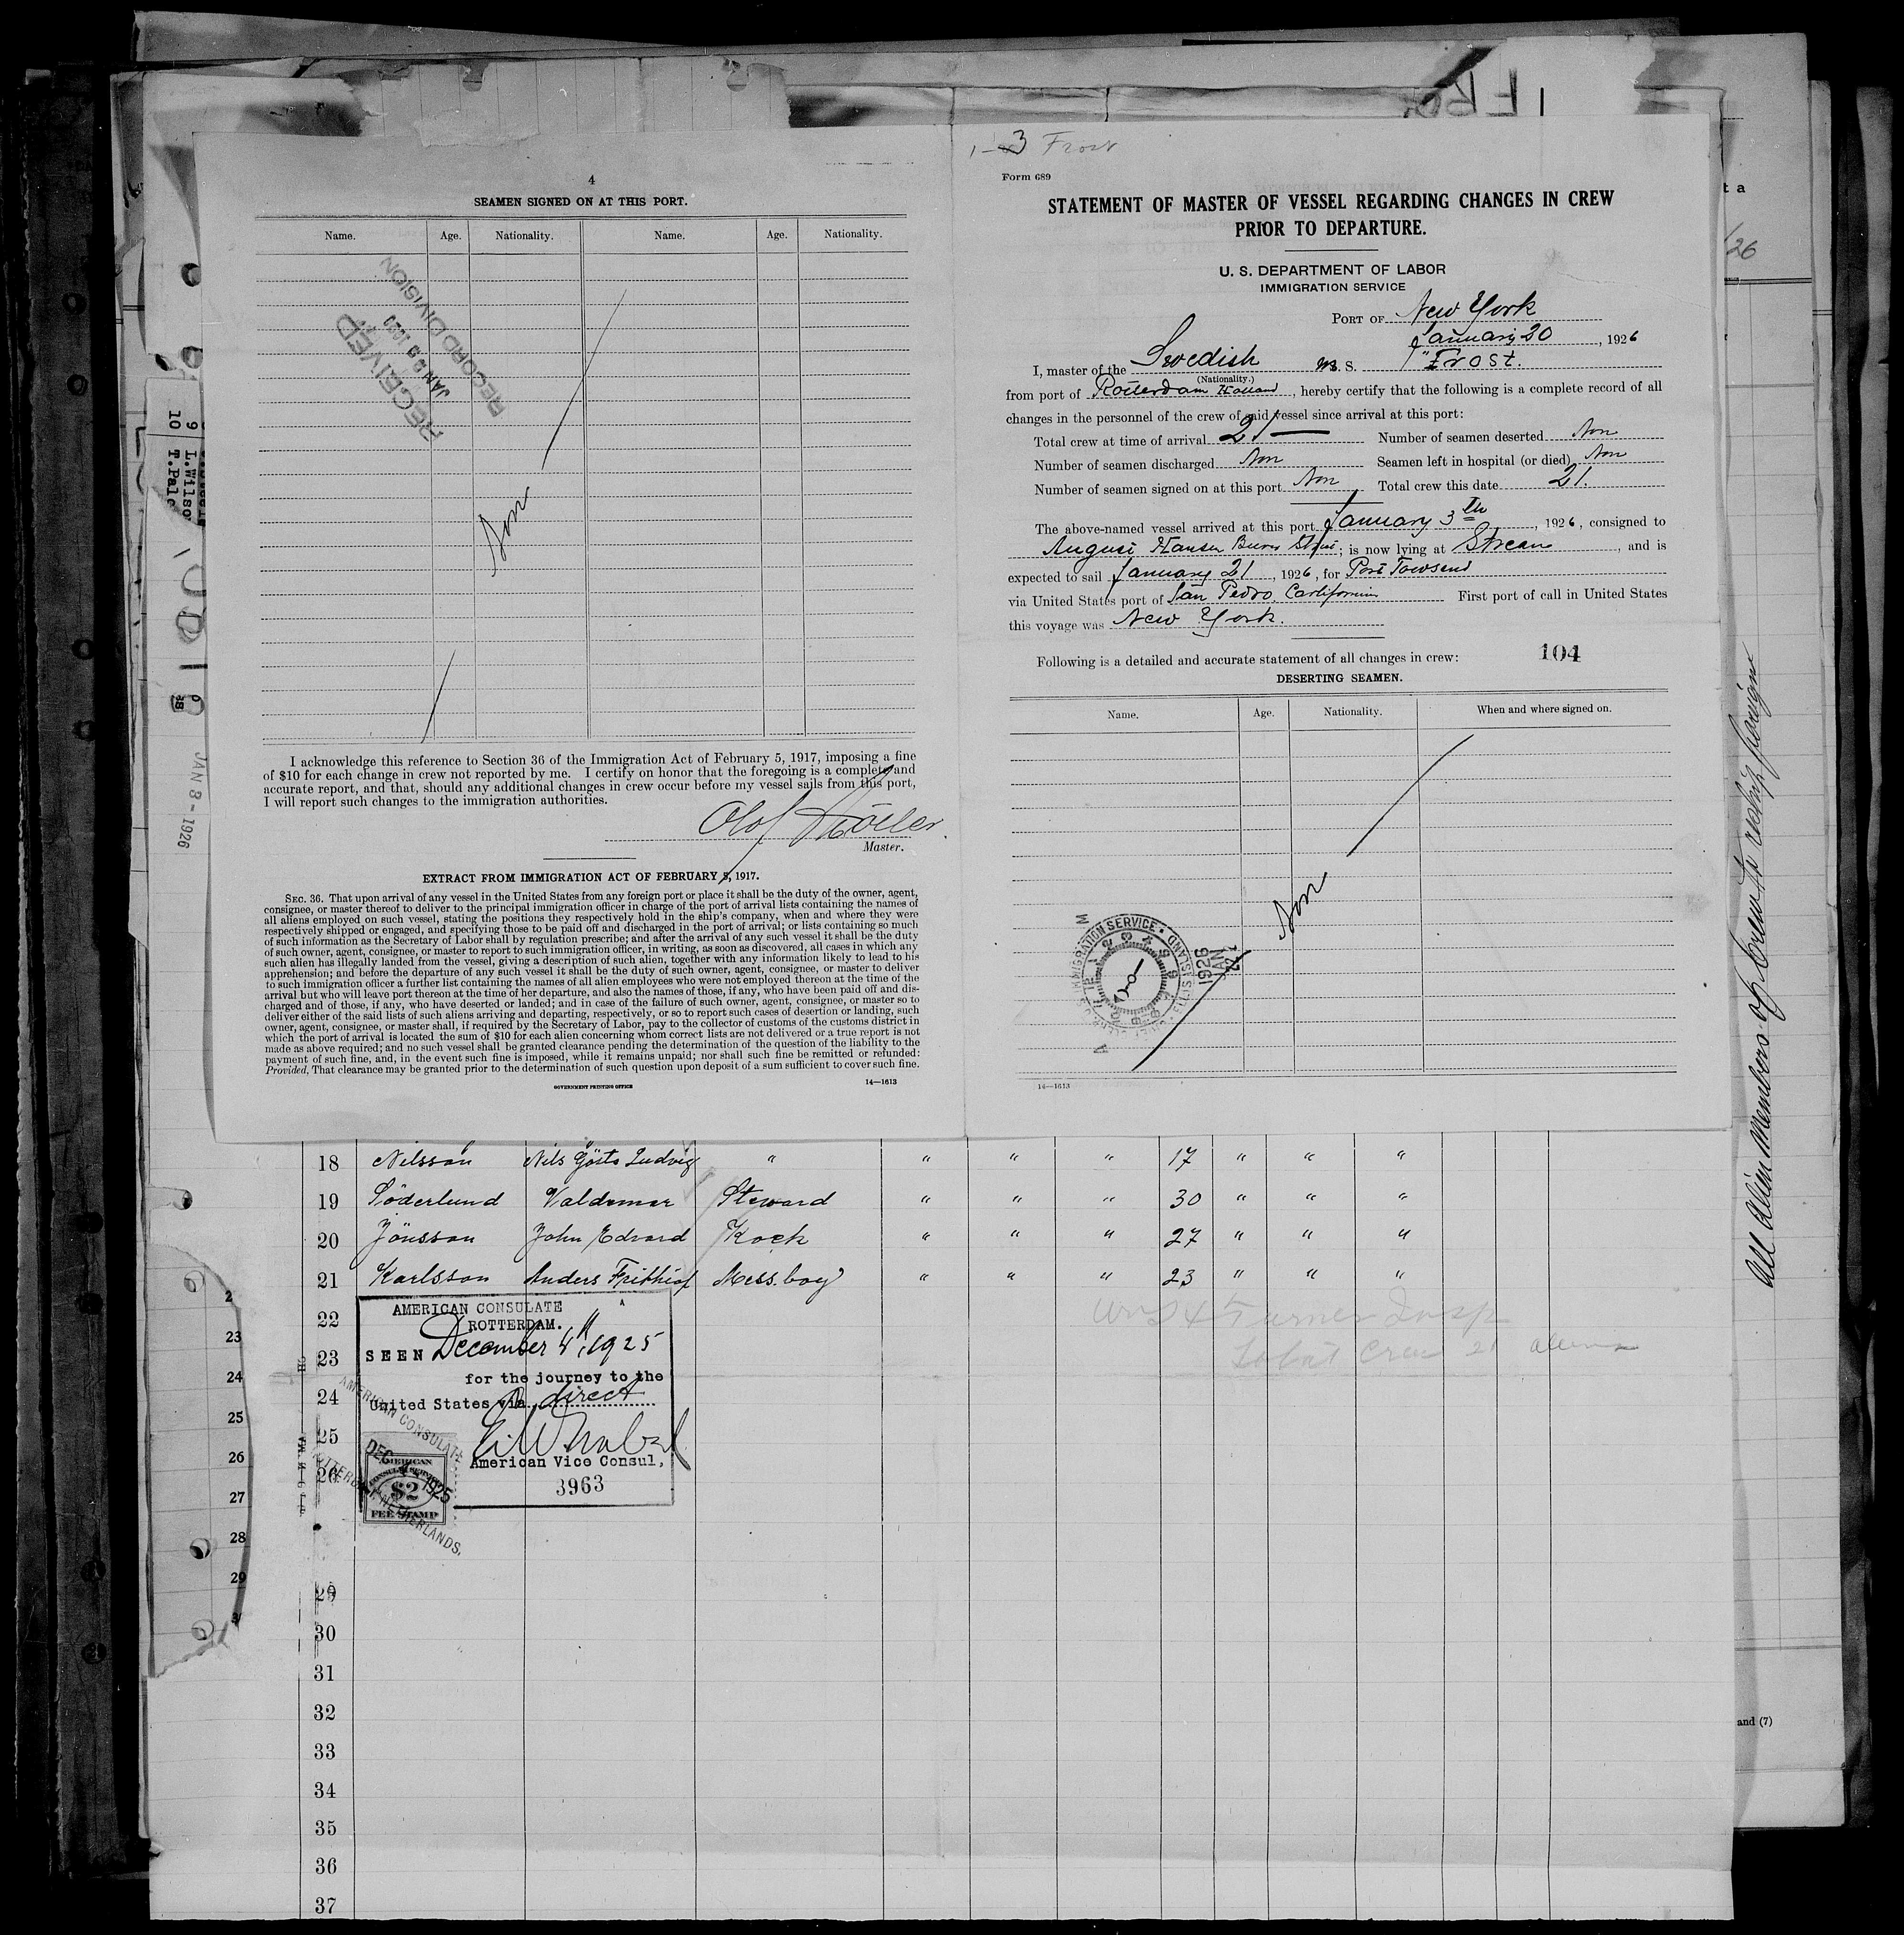 4
SEAMEN SIGNED ON AT THIS PORT.
Name. Age. Nationality. Name. Age. Nationality.
RECEIVED
RECORD DIVISION
Non
I acknowledge this reference to Section 36 of the Immigration Act of February 5, 1917, imposing a fine
of $10 for each change in crew not reported by me. I certify on honor that the foregoing is a complete and
accurate report, and that, should any additional changes in crew occur before my vessel sails from this port,
I will report such changes to the immigration authorities.
Olof Möller
Master.
EXTRACT FROM IMMIGRATION ACT OF FEBRUARY 5, 1917.
SEC. 36. That upon arrival of any vessel in the United States from any foreign port or place it shall be the duty of the owner, agent,
consignee, or master thereof to deliver to the principal immigration officer in charge of the port of arrival lists containing the names of
all aliens employed on such vessel, stating the positions they respectively hold in the ship's company, when and where they were
respectively shipped or engaged, and specifying those to be paid off and discharged in the port of arrival; or lists containing so much
of such information as the Secretary of Labor shall by regulation prescribe; and after the arrival of any such vessel it shall be the duty
of such owner, agent, consignee, or master to report to such immigration officer, in writing, as soon as discovered, all cases in which any
such alien has illegally landed from the vessel, giving a description of such alien, together with any information likely to lead to his
apprehension; and before the departure of any such vessel it shall be the duty of such owner, agent, consignee, or master to deliver
to such immigration officer a further list containing the names of all alien employees who were not employed thereon at the time of the
arrival but who will leave port thereon at the time of her departure, and also the names of those, if any, who have been paid off and dis-
charged and of those, if any, who have deserted or landed; and in case of the failure of such owner, agent, consignee, or master so to
deliver either of the said lists of such aliens arriving and departing, respectively, or so to report such cases of desertion or landing, such
owner, agent, consignee, or master shall, if required by the Secretary of Labor, pay to the collector of customs of the customs district in
which the port of arrival is located the sum of $10 for each alien concerning whom correct lists are not delivered or a true report is not
made as above required; and no such vessel shall be granted clearance pending the determination of the question of the liability to the
payment of such fine, and, in the event such fine is imposed, while it remains unpaid; nor shall such fine be remitted or refunded:
Provided, That clearance may be granted prior to the determination of such question upon deposit of a sum sufficient to cover such fine.
GOVERNMENT PRINTING OFFICE
14—1613
1-3 Frost
Form 689
STATEMENT OF MASTER OF VESSEL REGARDING CHANGES IN CREW
PRIOR TO DEPARTURE.
U. S. DEPARTMENT OF LABOR
IMMIGRATION SERVICE
PORT OF New York
January 20, 1926
I, master of the Swedish M. S. "Frost.
(Nationality.)
from port of Rotterdam Holland, hereby certify that the following is a complete record of all
changes in the personnel of the crew of said vessel since arrival at this port:
Total crew at time of arrival 21— Number of seamen deserted Non
Number of seamen discharged Non Seamen left in hospital (or died) Non
Number of seamen signed on at this port Non Total crew this date 21.
The above-named vessel arrived at this port January 3th, 1926, consigned to
August; is now lying at Stream, and is
expected to sail January 21, 1926, for Port Towsend
via United States port of San Pedro, California First port of call in United States
this voyage was New York.
Following is a detailed and accurate statement of all changes in crew: 104
DESERTING SEAMEN.
Name. Age. Nationality. When and where signed on.
Non
IMMIGRATION SERVICE
ELLIS ISLAND
1926
JAN
14—1613
18 Nilsson Nils Gösta Ludvig " " " " 17 " " "
19 Söderlund Valdemar Steward " " " 30 " " "
20 Jönsson John Edvard Kock " " " 27 " " "
21 Karlsson Anders Frithiof Mess. boy " " " 23 " " "
22
23
24
25
26
AMERICAN CONSULATE
ROTTERDAM.
SEEN December 4th, 1925
for the journey to the
United States via direct
American Vice Consul,
3963
AMERICAN CONSULATE
DEC 4 1925
ROTTERDAM NETHERLANDS.
AMERICAN
CONSULAR SERVICE
$2
FEE STAMP
Turner Insp
Total Crew 21 aliens
29
30
31
32
33
34
35
36
37
9 L.Wilson
10 T.Pale
JAN 8-1926
23
24
25
26
27
28
29
/26
All Alien Members of Crew to reship foreign
and (7)